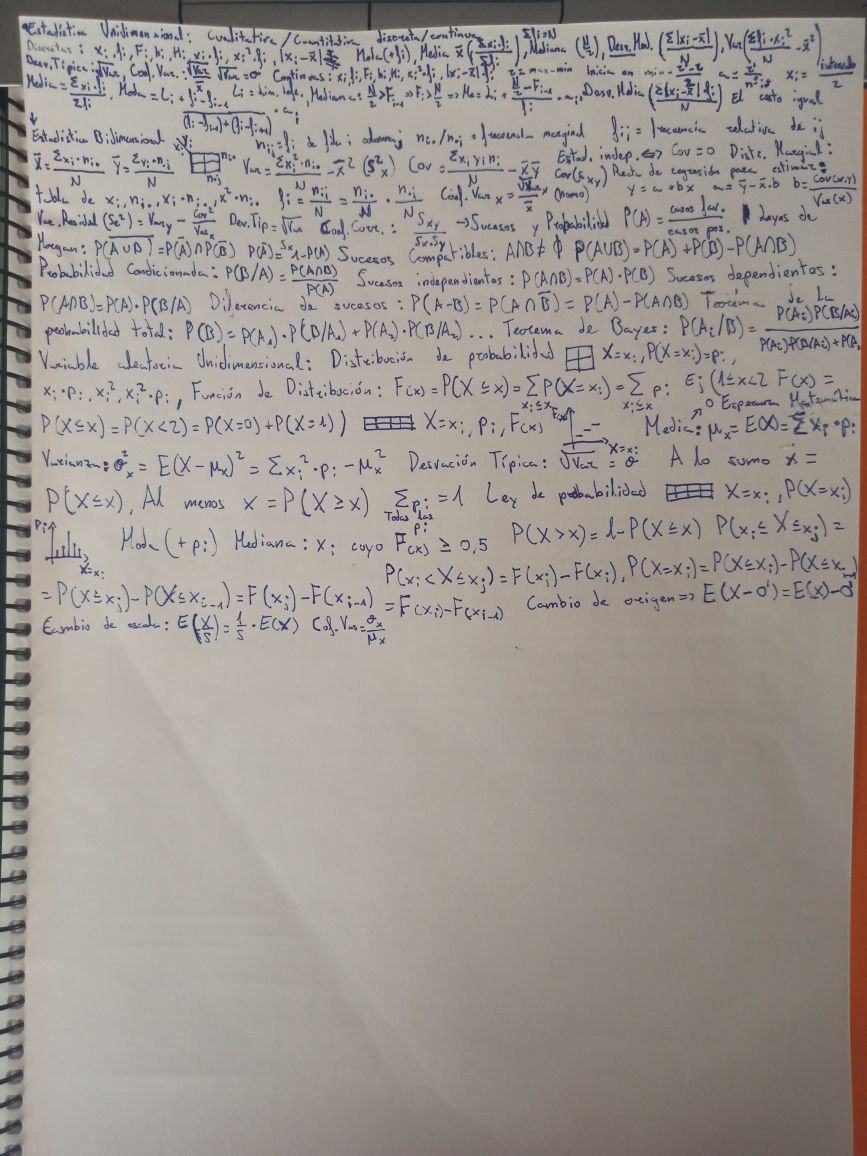 Estadística Unidimensional: Cualitativa / Cuantitativa discreta/continua
Discretas: xi, fi, Fi, hi, Hi, xi·fi, xi²·fi, |xi-x̄| Moda(+fi), Media x̄ (Σxi·fi/Σfi), Σfi=N Mediana (N/2), Desv. Med. (Σ|xi-x̄|/N), Var(Σfi·xi²/N - x̄²)
Desv. Típica: √Var, Coef. Var.: √Var/x̄ √Var=σ Continuas: xi, fi, Fi, hi, Hi, xi²·fi, |xi-x̄|·fi
Media=Σxi·fi/Σfi, Moda=Li + fi-fi-1/(fi-fi-1)+(fi-fi+1)·ai, Li=Lim. Infe., Mediana: N/2>Fi-1⇒Fi>N/2⇒Me=Li+ N/2-Fi-1/fi·ai, Desv. Media (Σ|xi-x̄|fi/N) El resto igual
Estadística Bidimensional nij=fi de fila i columna j ni./n.j=frecuencia marginal fij=frecuencia relativa de ij
x̄=Σxi·ni./N ȳ=Σyj·n.j/N Var=Σxi²·ni./N - x̄² (S²x) Cov=Σxiyjnij/N - x̄ȳ Estad. indep.⇔Cov=0 Distr. Marginal:
tabla de xi, ni., xi·ni., x²·ni. fi=nij/N=ni./N·n.j/N Coef. Varx=√Varx/x̄ (homo) Cov(Sxy) Recta de regresión para estimar: y=a+bx a=ȳ-x̄·b b=Cov(x,y)/Var(x)
Var. Residual (Se²)=Vary-Cov²/Varx Dev. Tip=√Var Coef. Corr.: Sxy/Sx·Sy →Sucesos y Probabilidad P(A)=casos fav./casos pos. Leyes de
Morgan: P(A∪B)=P(Ā)∩P(B̄) P(Ā)=1-P(A) Sucesos Compatibles: A∩B≠ϕ P(A∪B)=P(A)+P(B)-P(A∩B)
Probabilidad Condicionada: P(B/A)=P(A∩B)/P(A) Sucesos independientes: P(A∩B)=P(A)·P(B) Sucesos dependientes:
P(A∩B)=P(A)·P(B/A) Diferencia de sucesos: P(A-B)=P(A∩B̄)=P(A)-P(A∩B) Teorema de La
probabilidad total: P(B)=P(A₁)·P(B/A₁)+P(A₂)·P(B/A₂)... Teorema de Bayes: P(Ai/B)=P(Ai)P(B/Ai)/P(Ai)P(B/Ai)+P(A
Variable aleatoria Unidimensional: Distribución de probabilidad X=xi, P(X=xi)=pi,
xi·pi, xi², xi²·pi, Función de Distribución: F(x)=P(X≤x)=ΣP(X=xi)=Σpi Ej (1≤x<2 F(x)=
P(X≤x)=P(X<2)=P(X=0)+P(X=1)) X=xi, pi, F(x) F(x) X=xi Esperanza Matemática Media: μx=E(X)=Σxi·pi
Varianza: σ²x=E(X-μx)²=Σxi²·pi-μx² Desvación Típica: √Var=σ A lo sumo x=
P(X≤x), Al menos x=P(X≥x) Σpi=1 Todas las pi Ley de probabilidad X=xi, P(X=xi)
pi X=xi Moda (+pi) Mediana: xi cuyo F(x)≥0,5 P(X>x)=1-P(X≤x) P(xi≤X≤xj)=
=P(X≤xj)-P(X≤xi-1)=F(xj)-F(xi-1) P(xi<X≤xj)=F(xj)-F(xi), P(X=xi)=P(X≤xi)-P(X≤xi-1)
=F(xi)-F(xi-1) Cambio de origen⇒E(X-O')=E(X)-O'
Cambio de escala: E(X/S)=1/S·E(X) Cof. Var=σx/μx